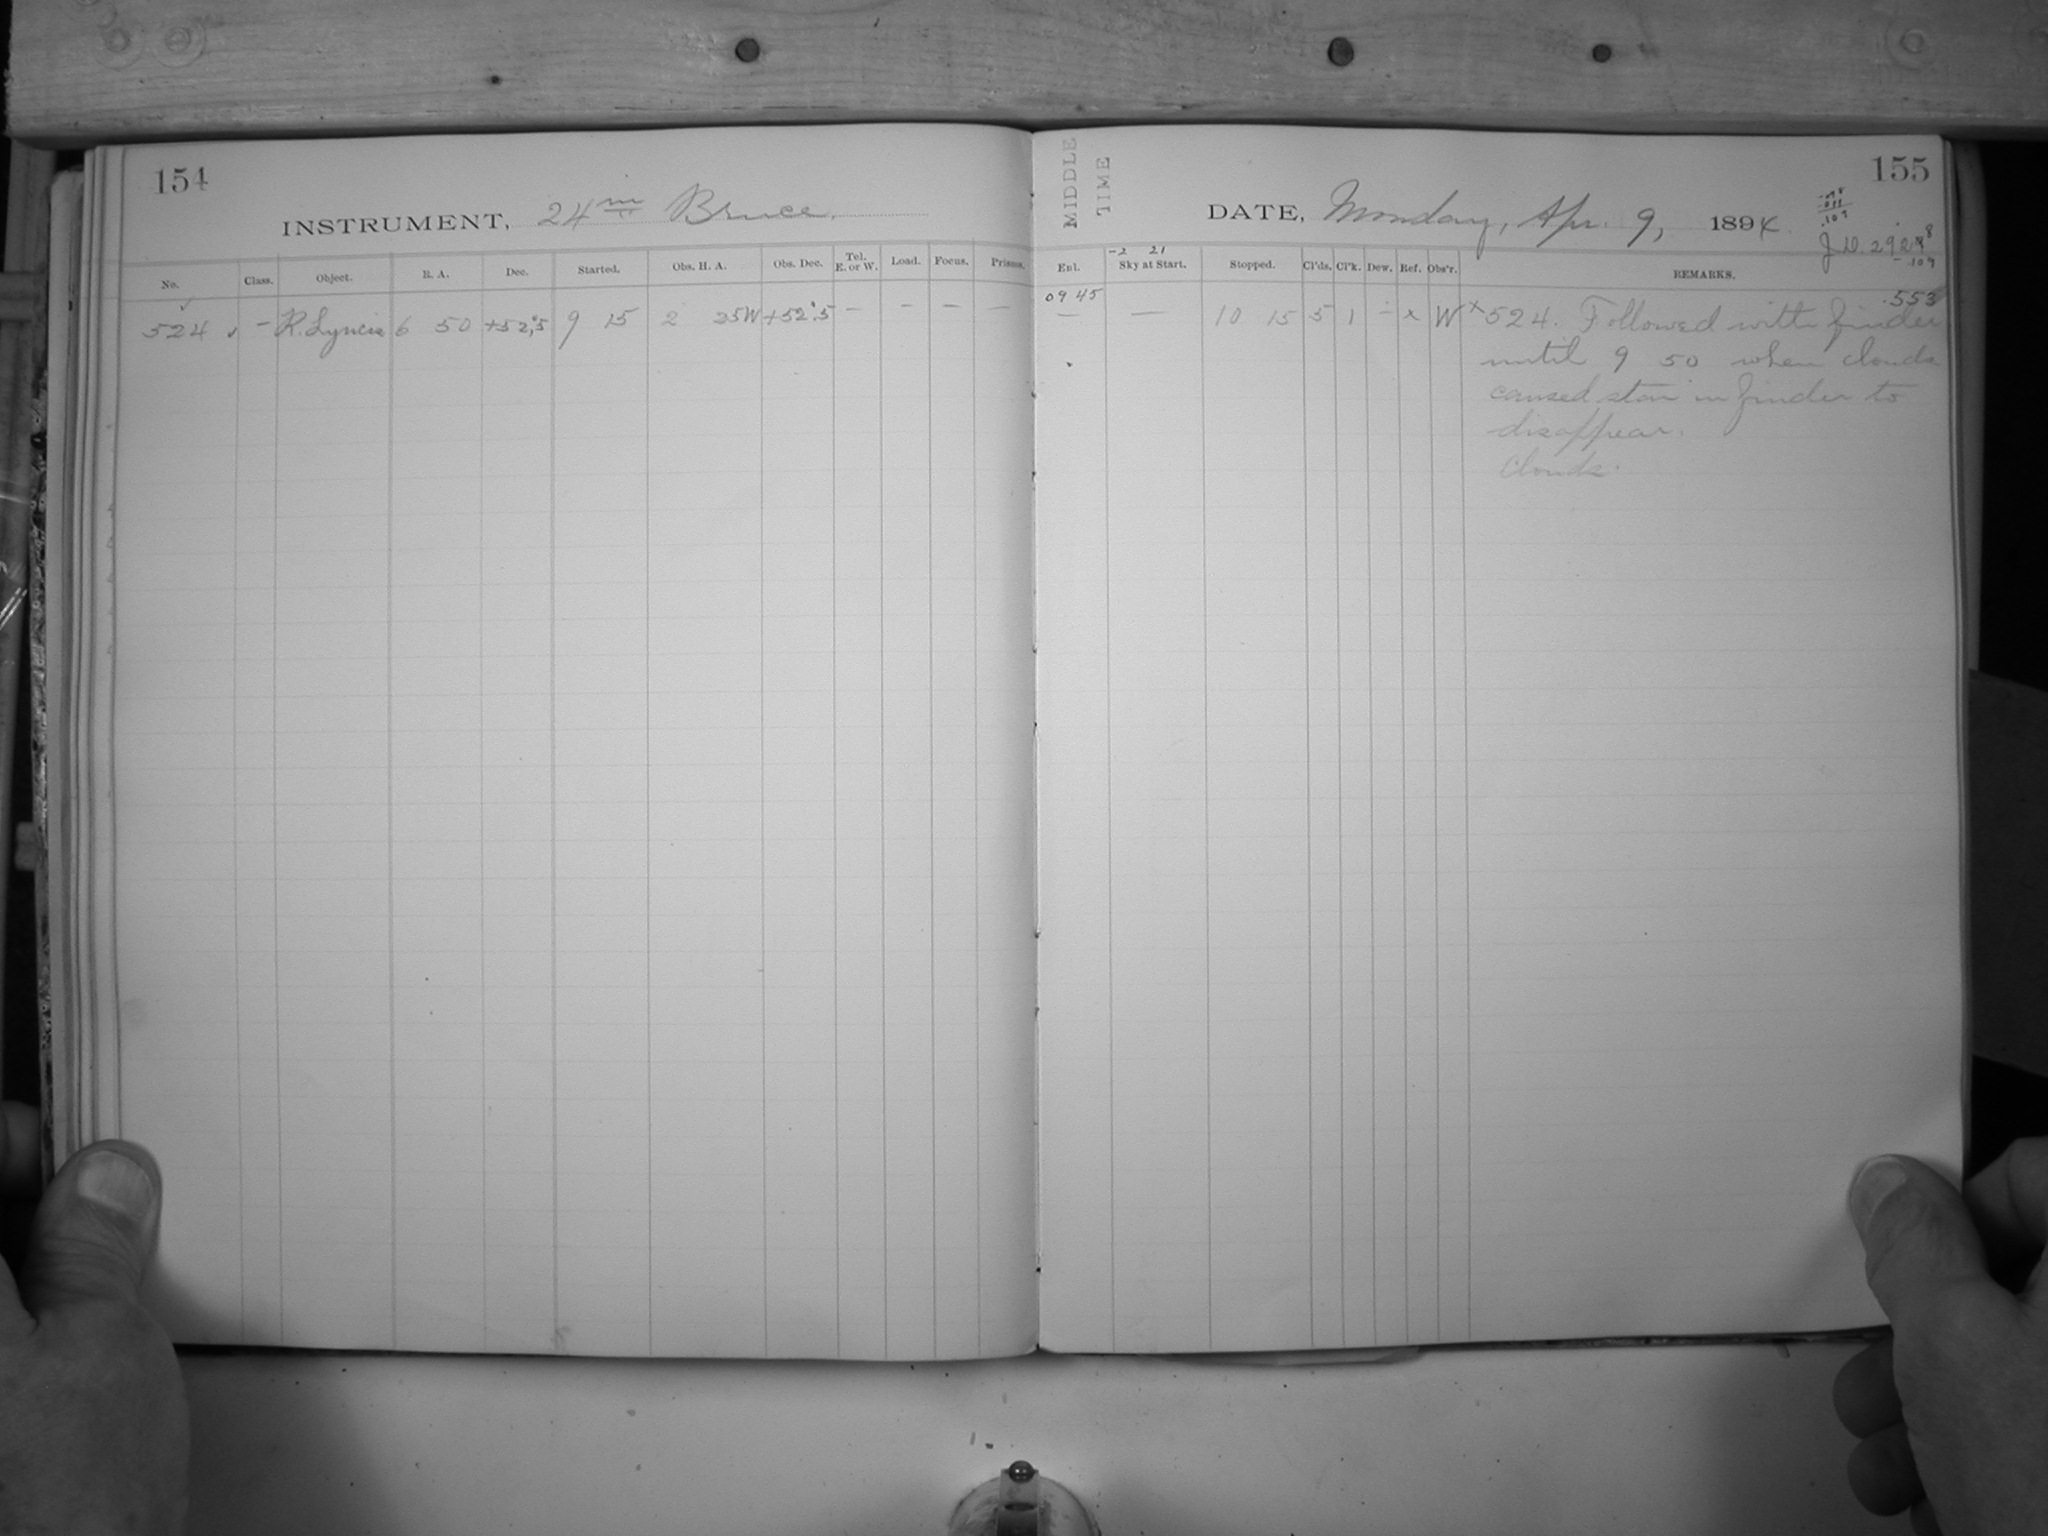 154
INSTRUMENT, 24 in Bruce.
No. Class. Object. R. A. Dec. Started. Obs. H. A. Obs. Dec. Tel. E. or W. Load. Focus. Prisms.
524 ✓ – R. Lyncis 6 50 +52°.5 9 15 2 25W +52°.5 – – – –
MIDDLE
TIME
155
DATE, Monday, Apr. 9, 1894.
-2 21
Enl. Sky at Start. Stopped. Cl'ds. Cl'k. Dew. Ref. Obs'r. REMARKS.
.109
.553
09 45
— — 10 15 5 1 – x W x 524. Followed with finder
until 9 50 when clouds
caused star in finder to
disappear.
Clouds.